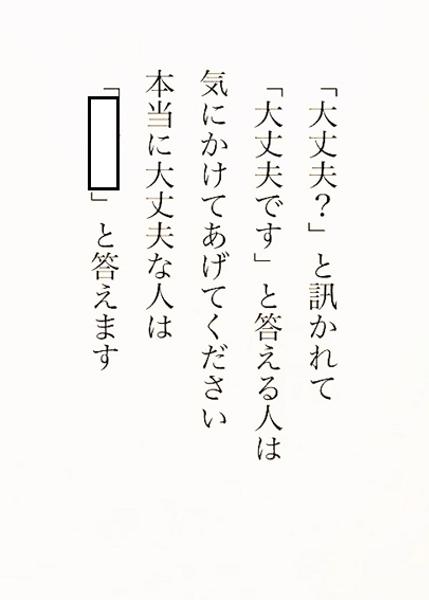 「大丈夫？」と訊かれて
「大丈夫です」と答える人は
気にかけてあげてください
本当に大丈夫な人は
「　　　」と答えます